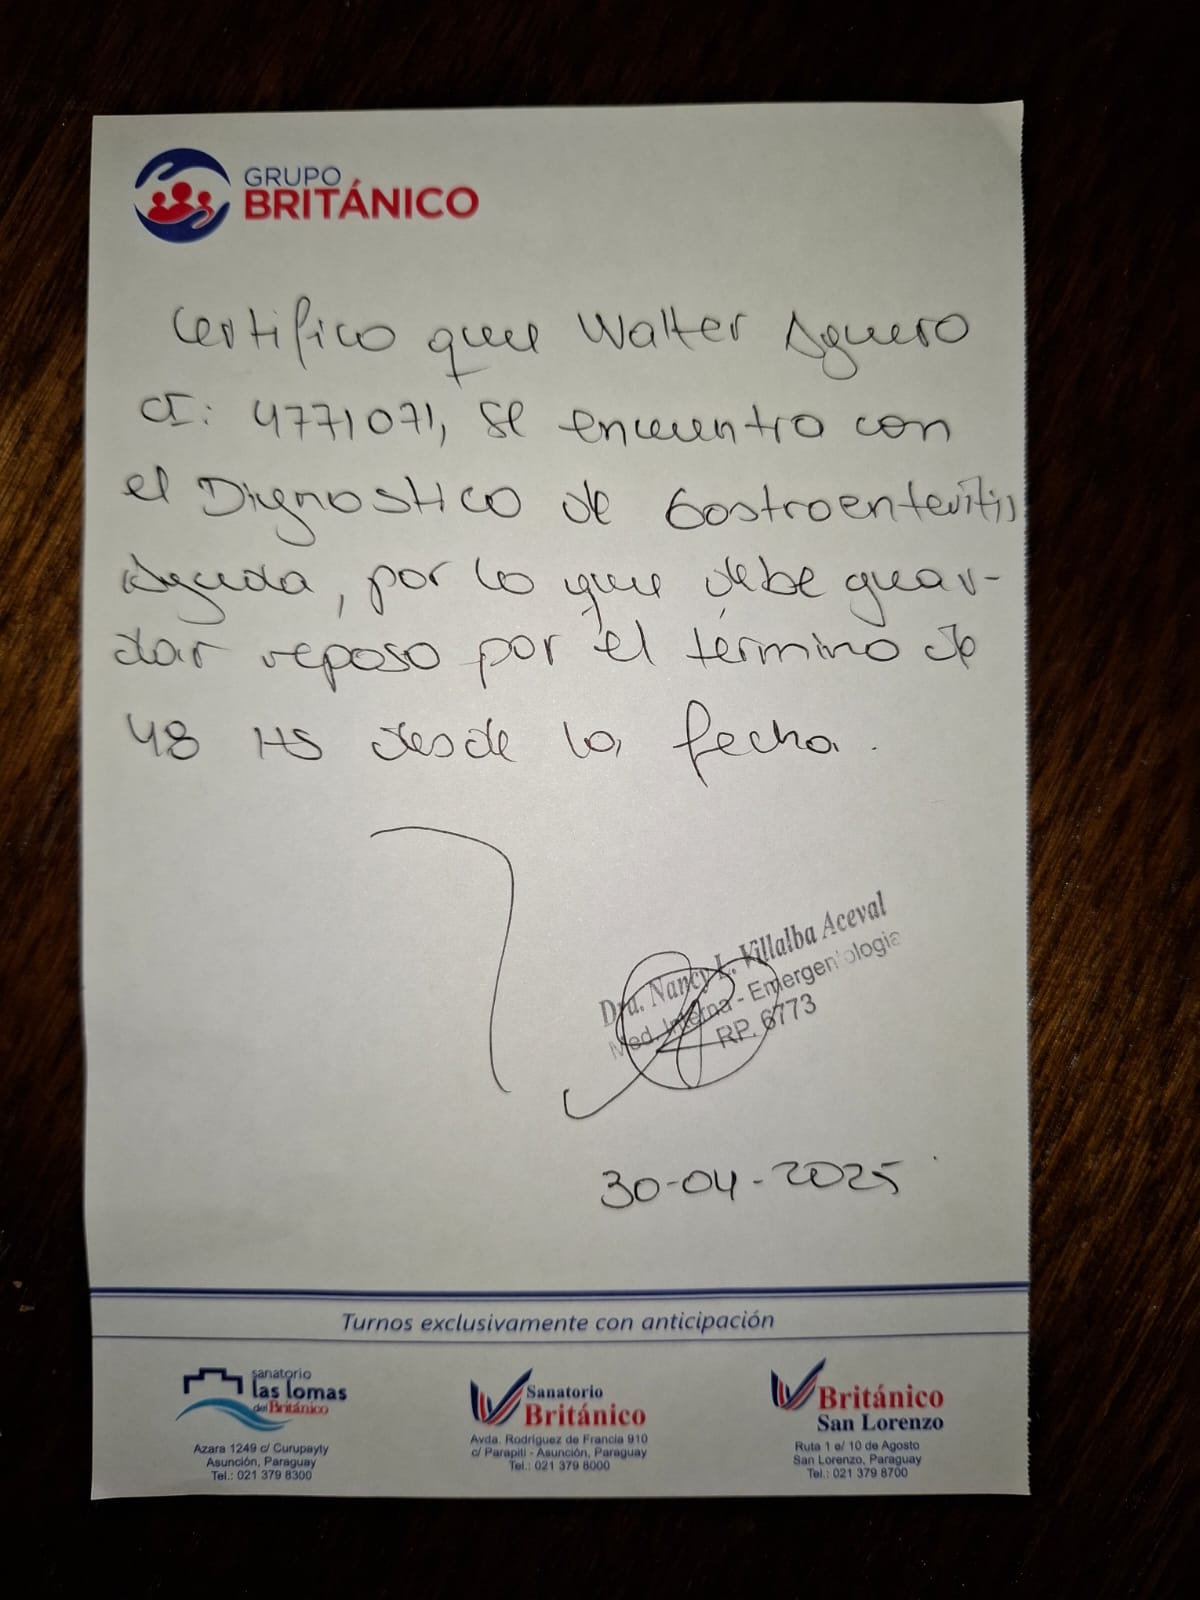 GRUPO
BRITÁNICO
Certifico que Walter Aguero
CI: 4771071, se encuentra con
el Dignostico de Gastroenteritis
Aguda, por lo que debe guar-
dar reposo por el término de
48 HS desde la fecha.
Dra. Nancy L. Villalba Aceval
Med. Interna - Emergentologia
RP. 6773
30-04-2025
Turnos exclusivamente con anticipación
sanatorio
las lomas
del Británico
Azara 1249 c/ Curupayty
Asunción, Paraguay
Tel.: 021 379 8300
Sanatorio
Británico
Avda. Rodríguez de Francia 910
c/ Parapití - Asunción, Paraguay
Tel.: 021 379 8000
Británico
San Lorenzo
Ruta 1 e/ 10 de Agosto
San Lorenzo, Paraguay
Tel.: 021 379 8700